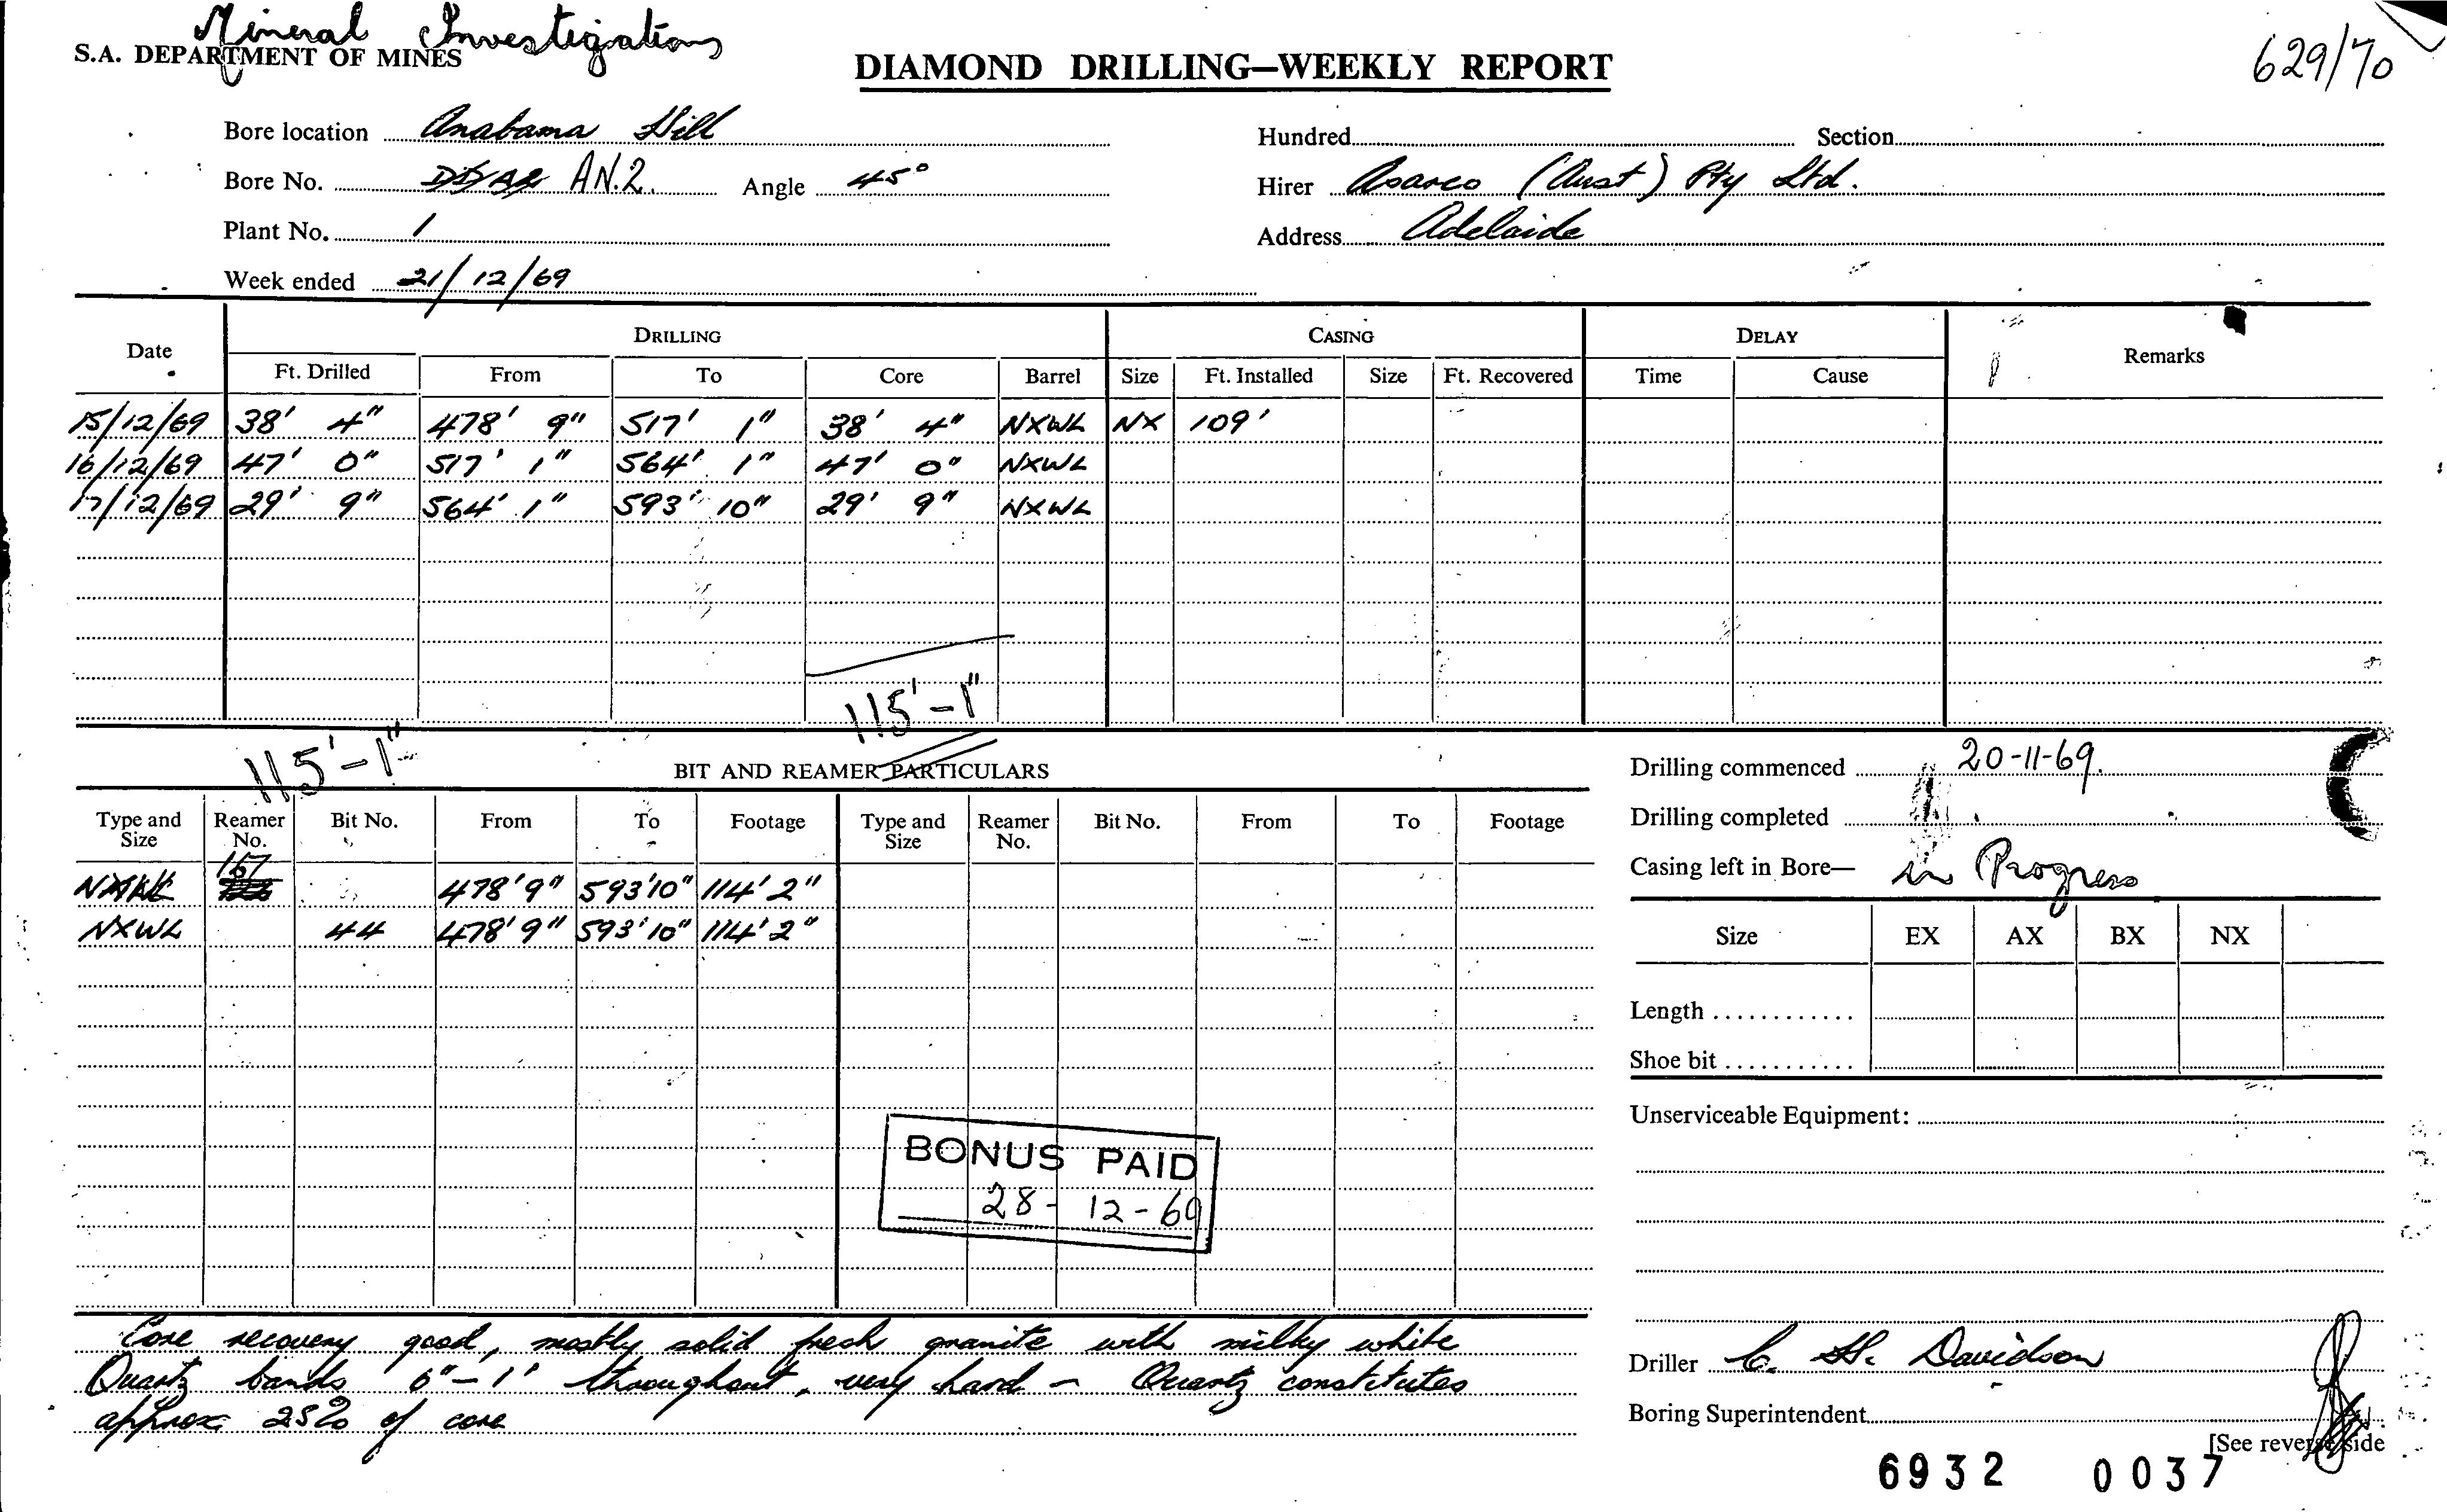 Mineral Investigations
S.A. DEPARTMENT OF MINES
DIAMOND DRILLING—WEEKLY REPORT
629/70
Bore location Anabama Hill
Hundred Section
Bore No. AN.2. Angle 45°
Hirer Asarco (Aust) Pty Ltd.
Plant No. 1
Address Adelaide
Week ended 21/12/69
Date DRILLING CASING DELAY Remarks
Ft. Drilled From To Core Barrel Size Ft. Installed Size Ft. Recovered Time Cause
15/12/69 38' 4" 478' 9" 517' 1" 38' 4" NXWL NX 109'
16/12/69 47' 0" 517' 1" 564' 1" 47' 0" NXWL
17/12/69 29' 9" 564' 1" 593' 10" 29' 9" NXWL
115'-1"
115'-1"
BIT AND REAMER PARTICULARS
Type and Size Reamer No. Bit No. From To Footage Type and Size Reamer No. Bit No. From To Footage
NXWL 167 478'9" 593'10" 114'2"
NXWL 44 478'9" 593'10" 114'2"
BONUS PAID
28-12-69
Core recovery good, mostly solid fresh granite with milky white
Quartz bands 6"-1' throughout, very hard - Quartz constitutes
approx 25% of core
Drilling commenced 20-11-69.
Drilling completed
Casing left in Bore— in Progress
Size EX AX BX NX
Length
Shoe bit
Unserviceable Equipment:
Driller C. H. Davidson
Boring Superintendent
[See reverse side
6932 0037